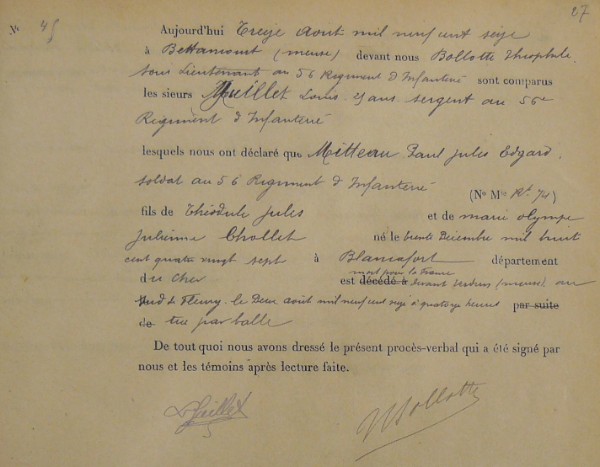 27
N° 45
Aujourd'hui Treize Aout mil neuf cent seize
à Bettancourt (meuse) devant nous Bollotte Théophile
sous Lieutenant au 56 Regiment d'Infanterie sont comparus
les sieurs Muillet Louis 25 ans sergent au 56e
Regiment d'Infanterie
lesquels nous ont déclaré que Mitteau Paul Jules Edgard.
soldat au 56 Regiment d'Infanterie
(No Mle Rt 74)
fils de Théodule Jules et de marie olympe
Julienne Chollet né le trente Décembre mil huit
cent quatre vingt sept à Blancafort département
du Cher est décédé à mort pour la france devant Verdun (meuse) au
Sud de Fleury le Deux août mil neuf cent seize à quatorze heures par suite
de tué par balle
De tout quoi nous avons dressé le présent procès-verbal qui a été signé par
nous et les témoins après lecture faite.
Bollotte